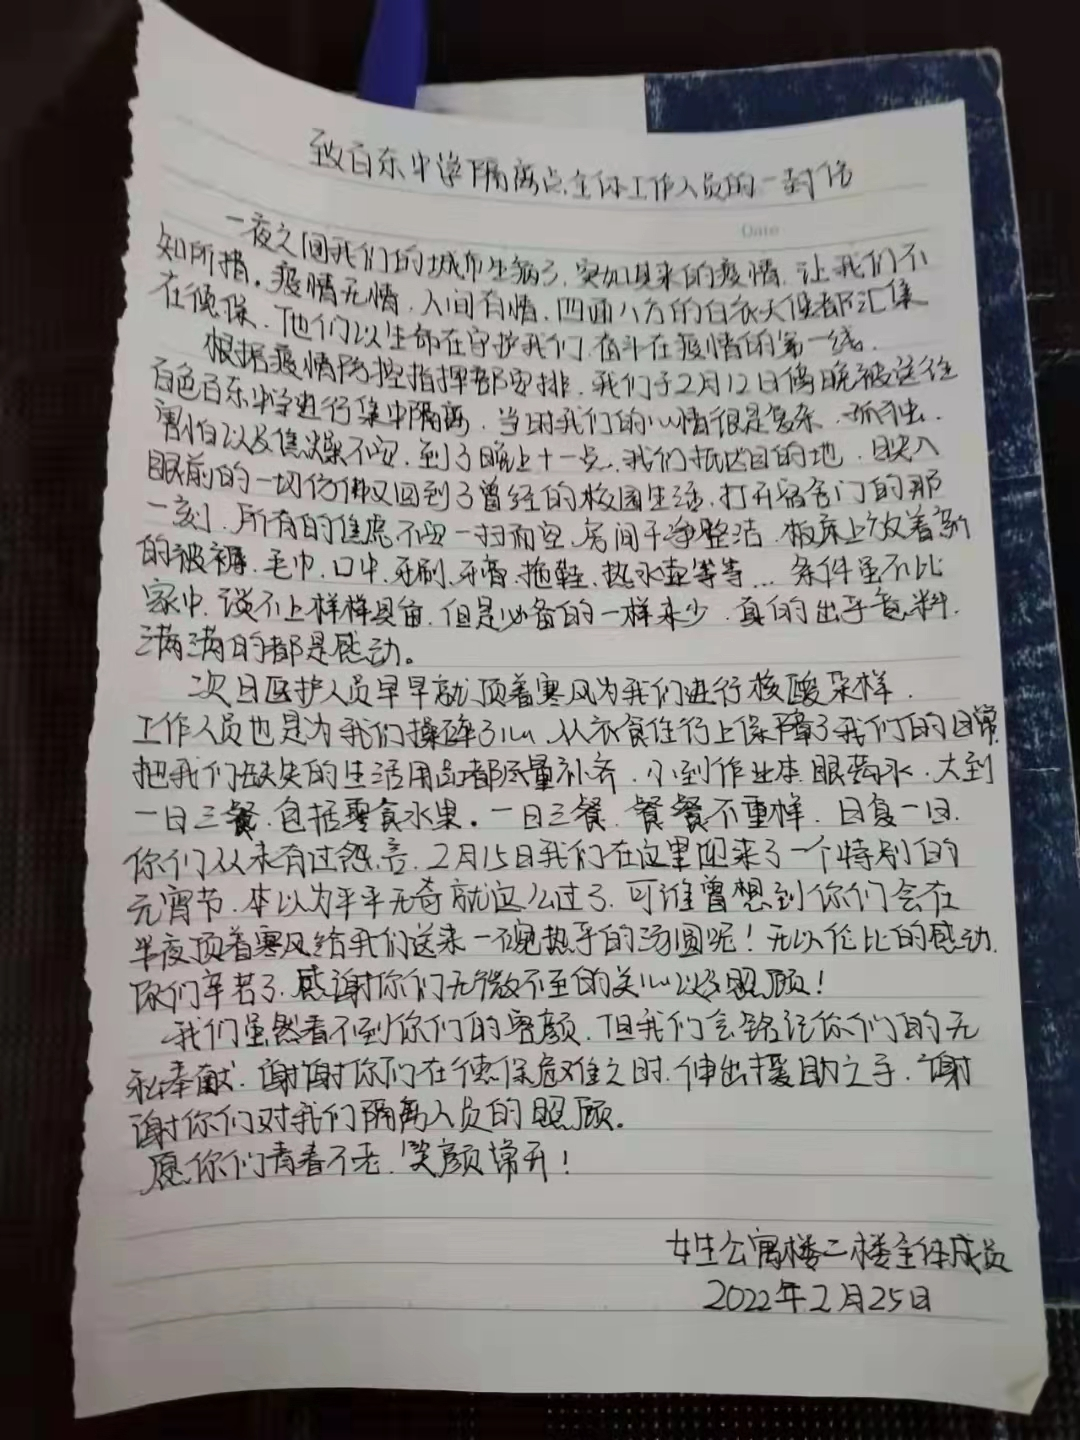 致百东中学隔离点全体工作人员的一封信
Date
一夜之间我们的城市生病了，突如其来的疫情，让我们不
知所措。疫情无情，人间有情，四面八方的白衣天使都汇集
在德保，他们以生命在守护我们，奋斗在疫情的第一线。
根据疫情防控指挥部安排，我们于2月12日傍晚被送往
百色百东中学进行集中隔离，当时我们的心情很是复杂，孤独，
害怕以及焦燥不安，到了晚上十一点，我们抵达目的地，映入
眼前的一切仿佛又回到了曾经的校园生活，打开宿舍门的那
一刻，所有的焦虑不安一扫而空，房间干净整洁，板床上放着崭新
的被褥，毛巾，口中，牙刷，牙膏，拖鞋，热水壶等等...条件虽不比
家中，谈不上样样具备，但是必备的一样未少，真的出乎意料，
满满的都是感动。
次日医护人员早早就顶着寒风为我们进行核酸采样，
工作人员也是为我们操碎了心，从衣食住行上保障了我们的日常
把我们缺失的生活用品都尽量补齐，小到作业本，眼药水，大到
一日三餐，包括零食水果。一日三餐，餐餐不重样，日复一日，
你们从未有过怨言，2月15日我们在这里迎来了一个特别的
元宵节，本以为平平无奇就这么过了，可谁曾想到你们会在
半夜顶着寒风给我们送来一碗热乎的汤圆呢！无以伦比的感动，
你们辛苦了，感谢你们无微不至的关心以及照顾！
我们虽然看不到你们的容颜，但我们会铭记你们的无
私奉献，谢谢你们在德保危难之时，伸出援助之手，谢
谢你们对我们隔离人员的照顾。
愿你们青春不老，笑颜常开！
女生公寓楼二楼全体成员
2022年2月25日